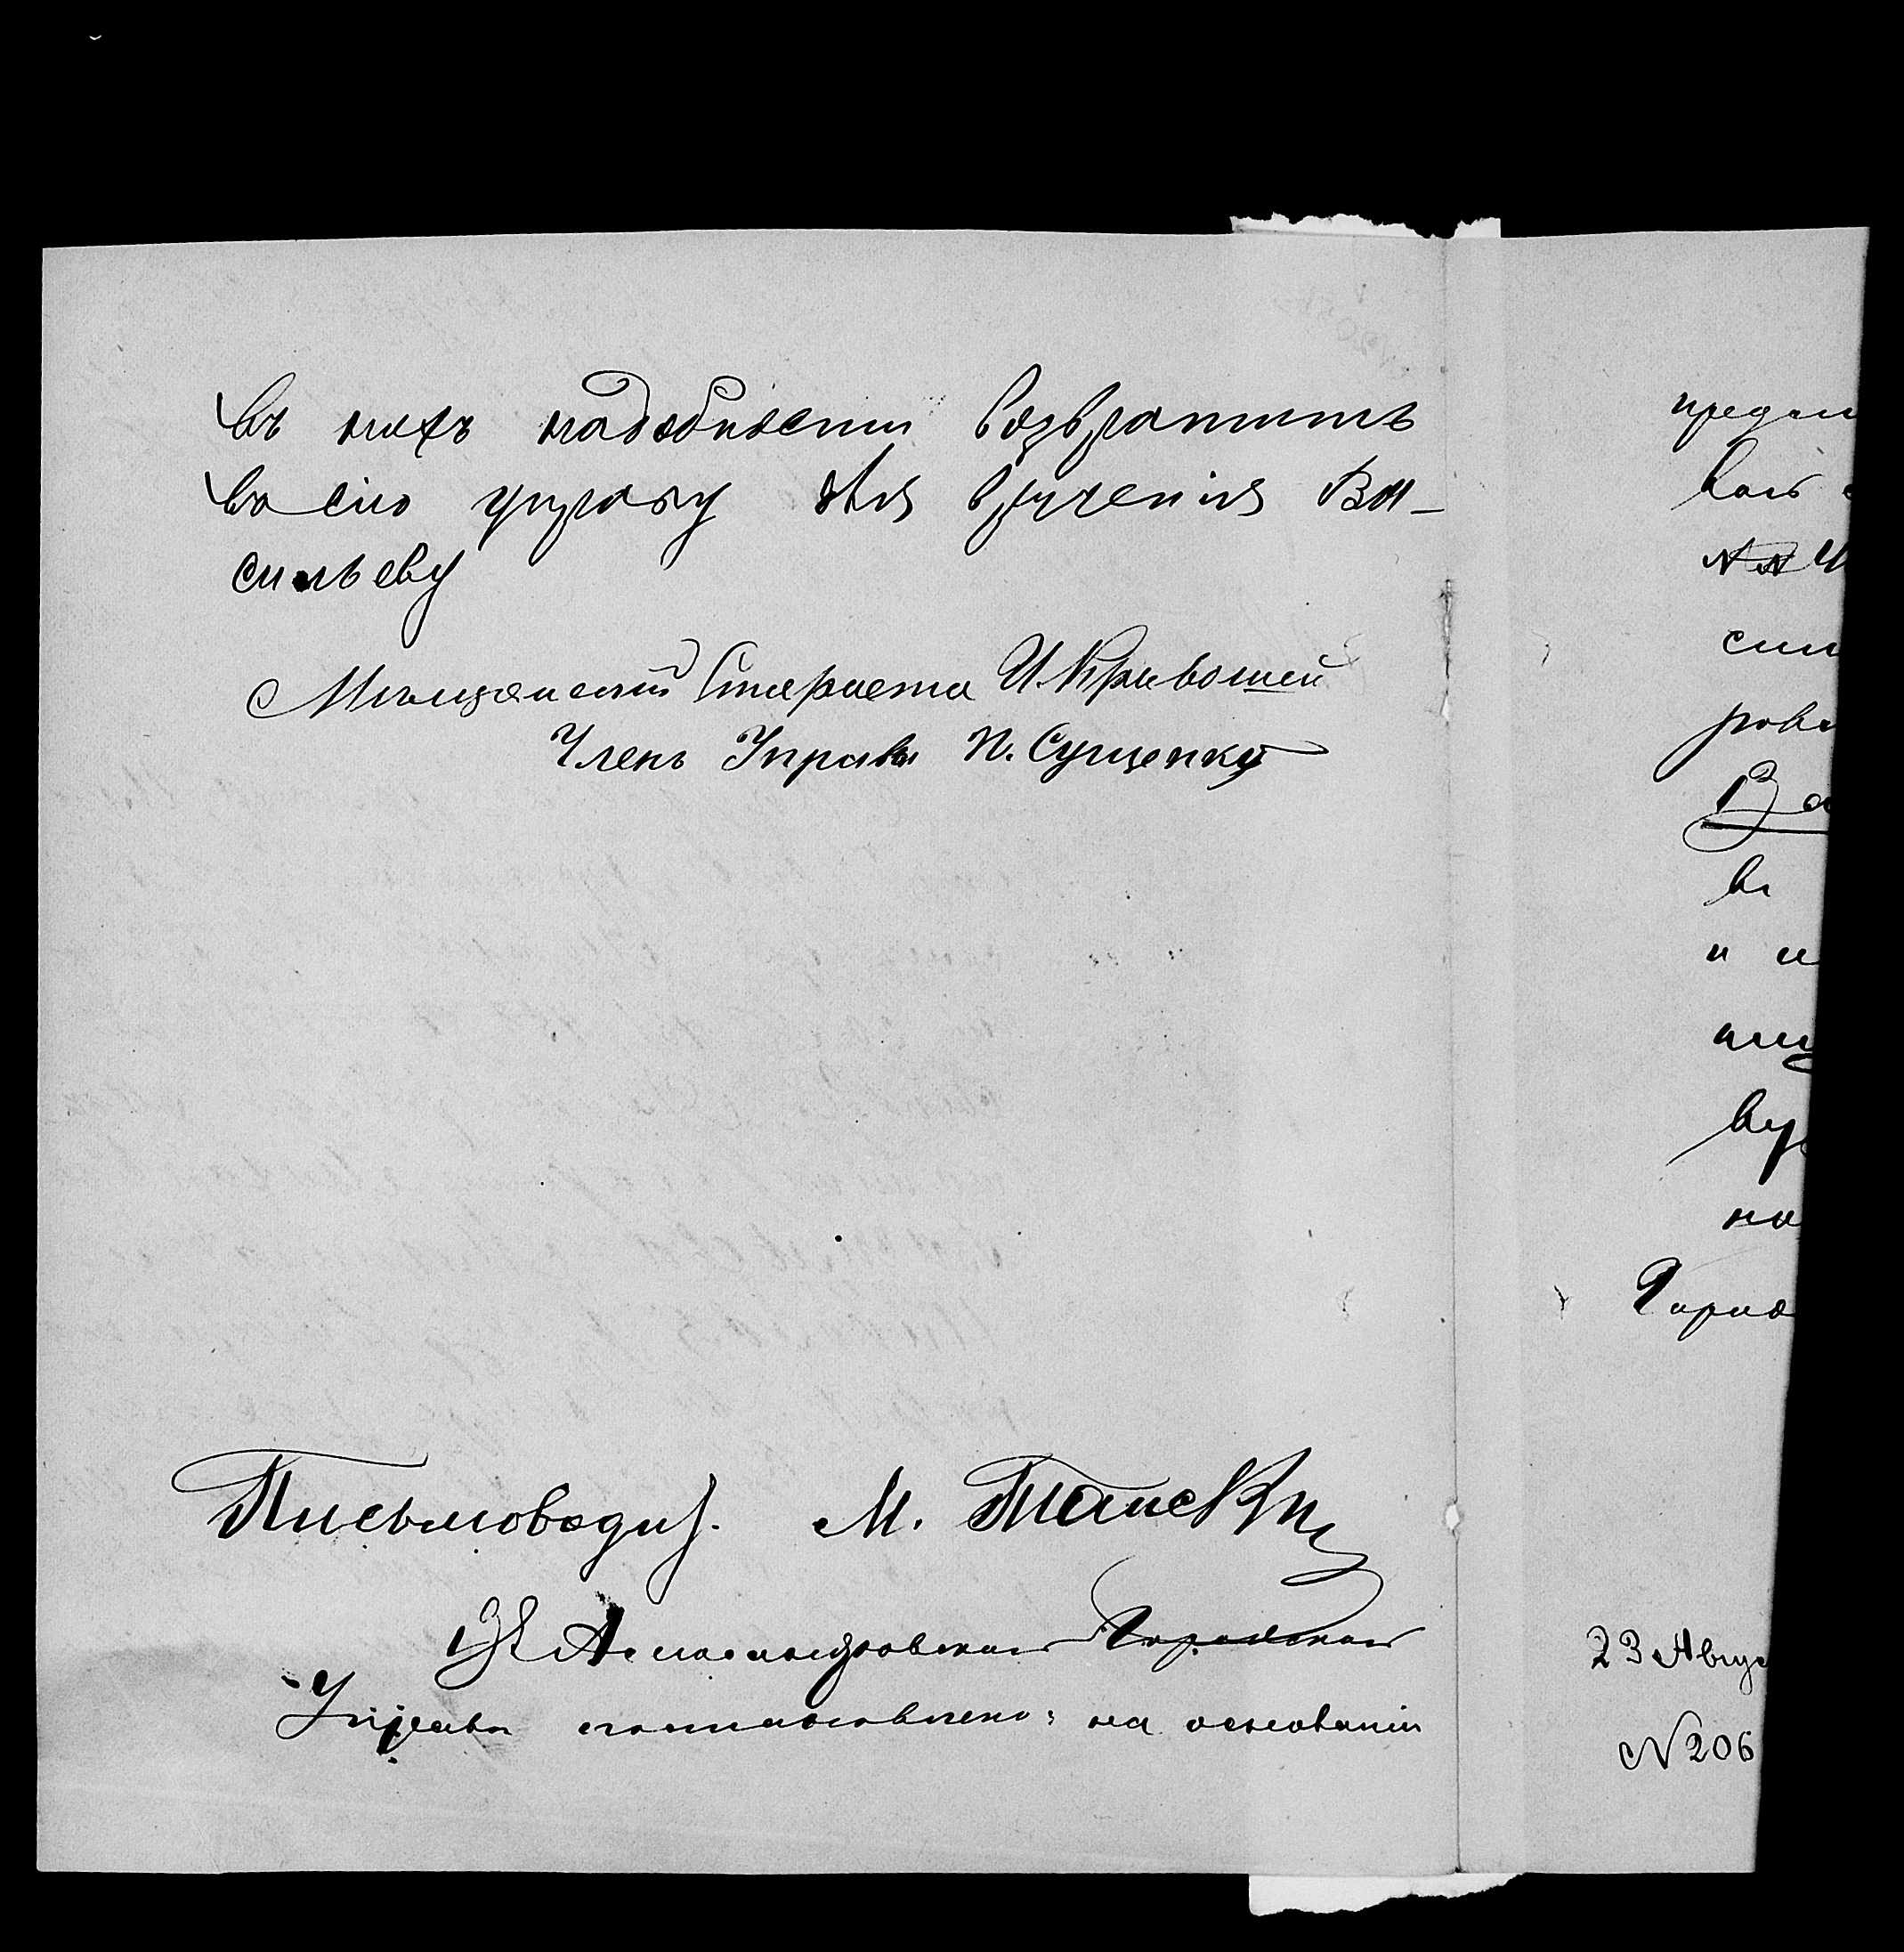 въ нихъ надобности возвратить
во сію управу для врученія Ва-
сильеву
Мѣщанскій Староста И. Кривошей
Членъ Управы П. Сущенко
Письмоводит. М.
Александровская Городская
Управа постановлено: на основаніи
предл
кой
сил
рова
Ва
въ
и
ву
на
Город
23 Авгус
N 206